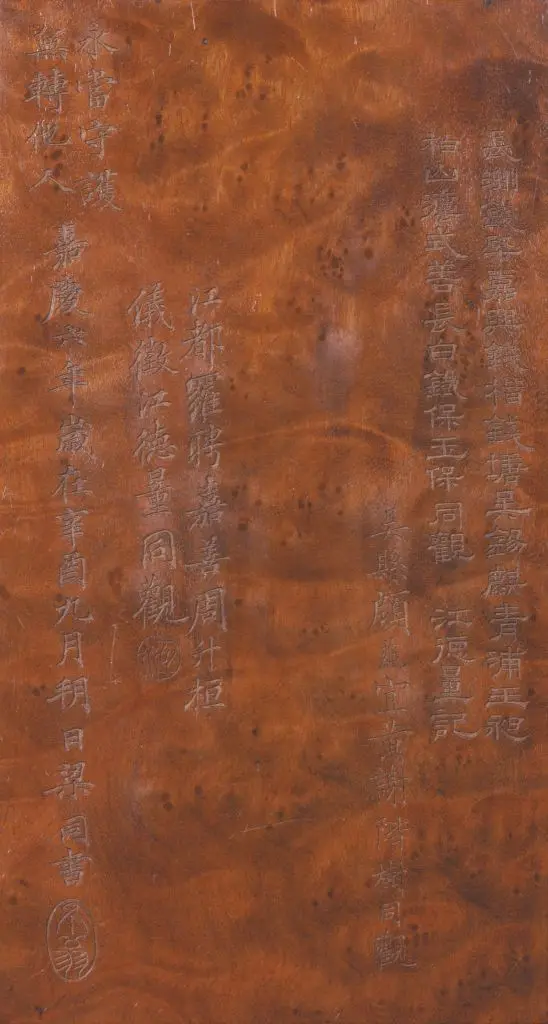 長洲繆晉嘉興戴楷錢塘吳錫麒青浦王昶
柏山濮式善長白鐵保玉保同觀 江德量記
吳縣顧蒓宜黃謝階樹同觀
江都羅聘嘉善周升桓
儀徵江德量同觀
永當守護
無轉他人 嘉慶六年歲在辛酉九月朔日梁同書
不翁